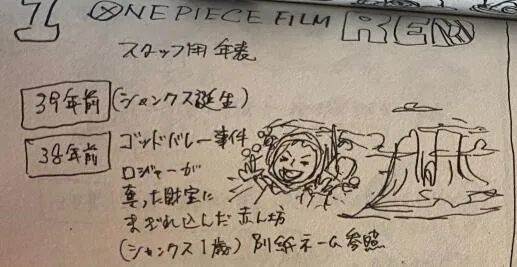 1 ONE PIECE FILM RED
スタッフ用年表
39年前 (シャンクス誕生)
38年前 ゴッドバレー事件
ロジャーが
奪った財宝に
まぎれ込んだ赤ん坊
(シャンクス1歳) 別紙ネーム参照